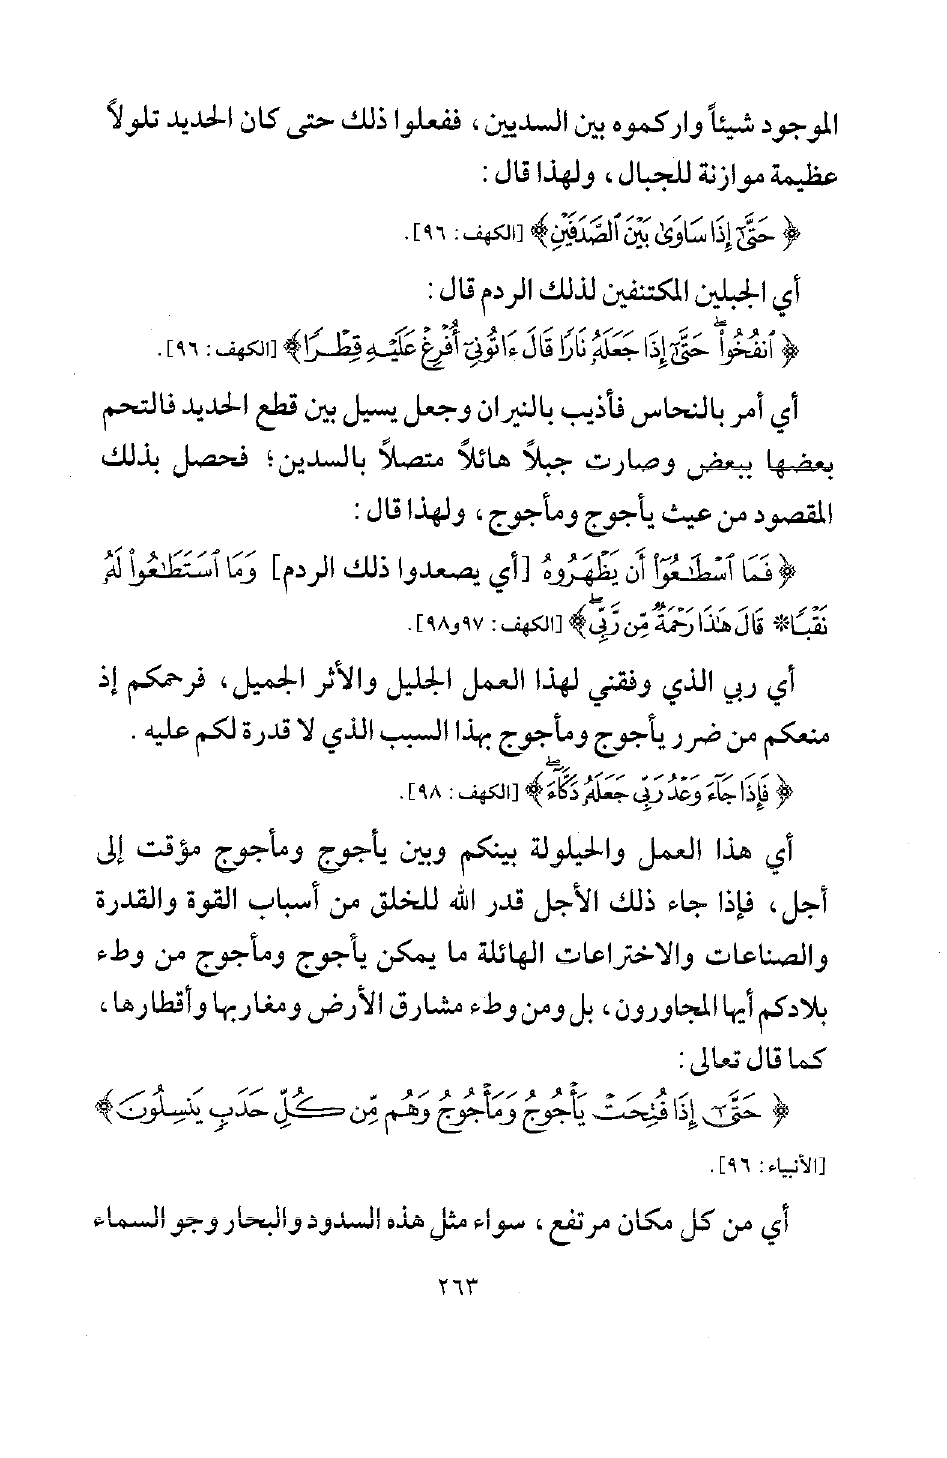 الموجود شيئاً واركموه بين السديين، ففعلوا ذلك حتى كان الحديد تلولاً
عظيمة موازنة للجبال، ولهذا قال:
﴿ حَتَّىٰٓ إِذَا سَاوَىٰ بَيْنَ ٱلصَّدَفَيْنِ﴾ [الكهف: ٩٦].
أي الجبلين المكتنفين لذلك الردم قال:
﴿ ٱنفُخُواْۖ حَتَّىٰٓ إِذَا جَعَلَهُۥ نَارًا قَالَ ءَاتُونِيٓ أُفْرِغْ عَلَيْهِ قِطْرًا﴾ [الكهف: ٩٦].
أي أمر بالنحاس فأذيب بالنيران وجعل يسيل بين قطع الحديد فالتحم
بعضها ببعض وصارت جبلاً هائلاً متصلاً بالسدين؛ فحصل بذلك
المقصود من عيث يأجوج ومأجوج، ولهذا قال:
﴿ فَمَا ٱسْطَٰعُوٓاْ أَن يَظْهَرُوهُ [أي يصعدوا ذلك الردم] وَمَا ٱسْتَطَٰعُواْ لَهُۥ
نَقْبًا* قَالَ هَٰذَا رَحْمَةٌ مِّن رَّبِّيۖ﴾ [الكهف: ٩٧و٩٨].
أي ربي الذي وفقني لهذا العمل الجليل والأثر الجميل، فرحمكم إذ
منعكم من ضرر يأجوج ومأجوج بهذا السبب الذي لا قدرة لكم عليه.
﴿ فَإِذَا جَآءَ وَعْدُ رَبِّي جَعَلَهُۥ دَكَّآءَۖ﴾ [الكهف: ٩٨].
أي هذا العمل والحيلولة بينكم وبين يأجوج ومأجوج مؤقت إلى
أجل، فإذا جاء ذلك الأجل قدر الله للخلق من أسباب القوة والقدرة
والصناعات والاختراعات الهائلة ما يمكن يأجوج ومأجوج من وطء
بلادكم أيها المجاورون، بل ومن وطء مشارق الأرض ومغاربها وأقطارها،
كما قال تعالى:
﴿ حَتَّىٰٓ إِذَا فُتِحَتْ يَأْجُوجُ وَمَأْجُوجُ وَهُم مِّن كُلِّ حَدَبٍ يَنسِلُونَ﴾
[الأنبياء: ٩٦].
أي من كل مكان مرتفع، سواء مثل هذه السدود والبحار وجو السماء
٢٦٣